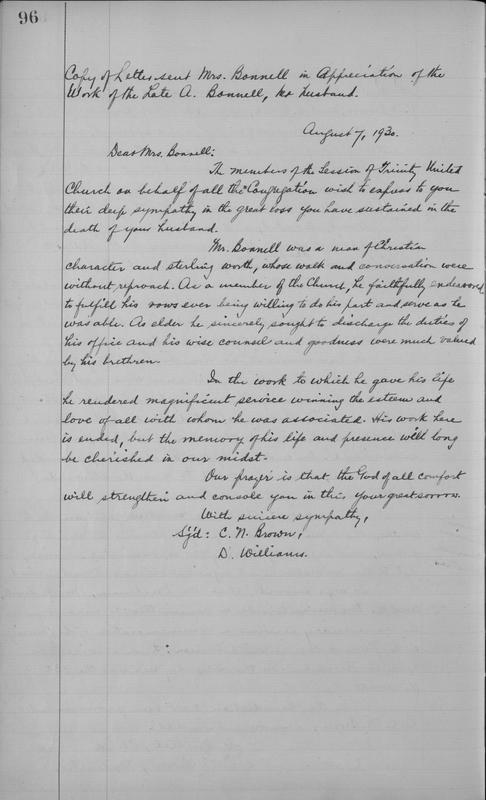 96
Copy of Letter sent Mrs. Bonnell in Appreciation of the
Work of the Late A. Bonnell, her husband.
August 7, 1930.
Dear Mrs. Bonnell:
The members of the Session of Trinity United
Church on behalf of all the Congregation wish to express to you
their deep sympathy in the great loss you have sustained in the
death of your husband.
Mr. Bonnell was a man of Christian
character and sterling worth, whose walk and conversation were
without reproach. As a member of the Church, he faithfully endeavored
to fulfill his vows ever being willing to do his part and serve as he
was able. As elder he sincerely sought to discharge the duties of
his office and his wise counsel and goodness were much valued
by his brethren.
In the work to which he gave his life
he rendered magnificent service winning the esteem and
love of all with whom he was associated. His work here
is ended, but the memory of his life and presence will long
be cherished in our midst.
Our prayer is that the God of all comfort
will strengthen and console you in this your great sorrow.
With sincere sympathy,
Sg'd: C. N. Brown,
D. Williams.